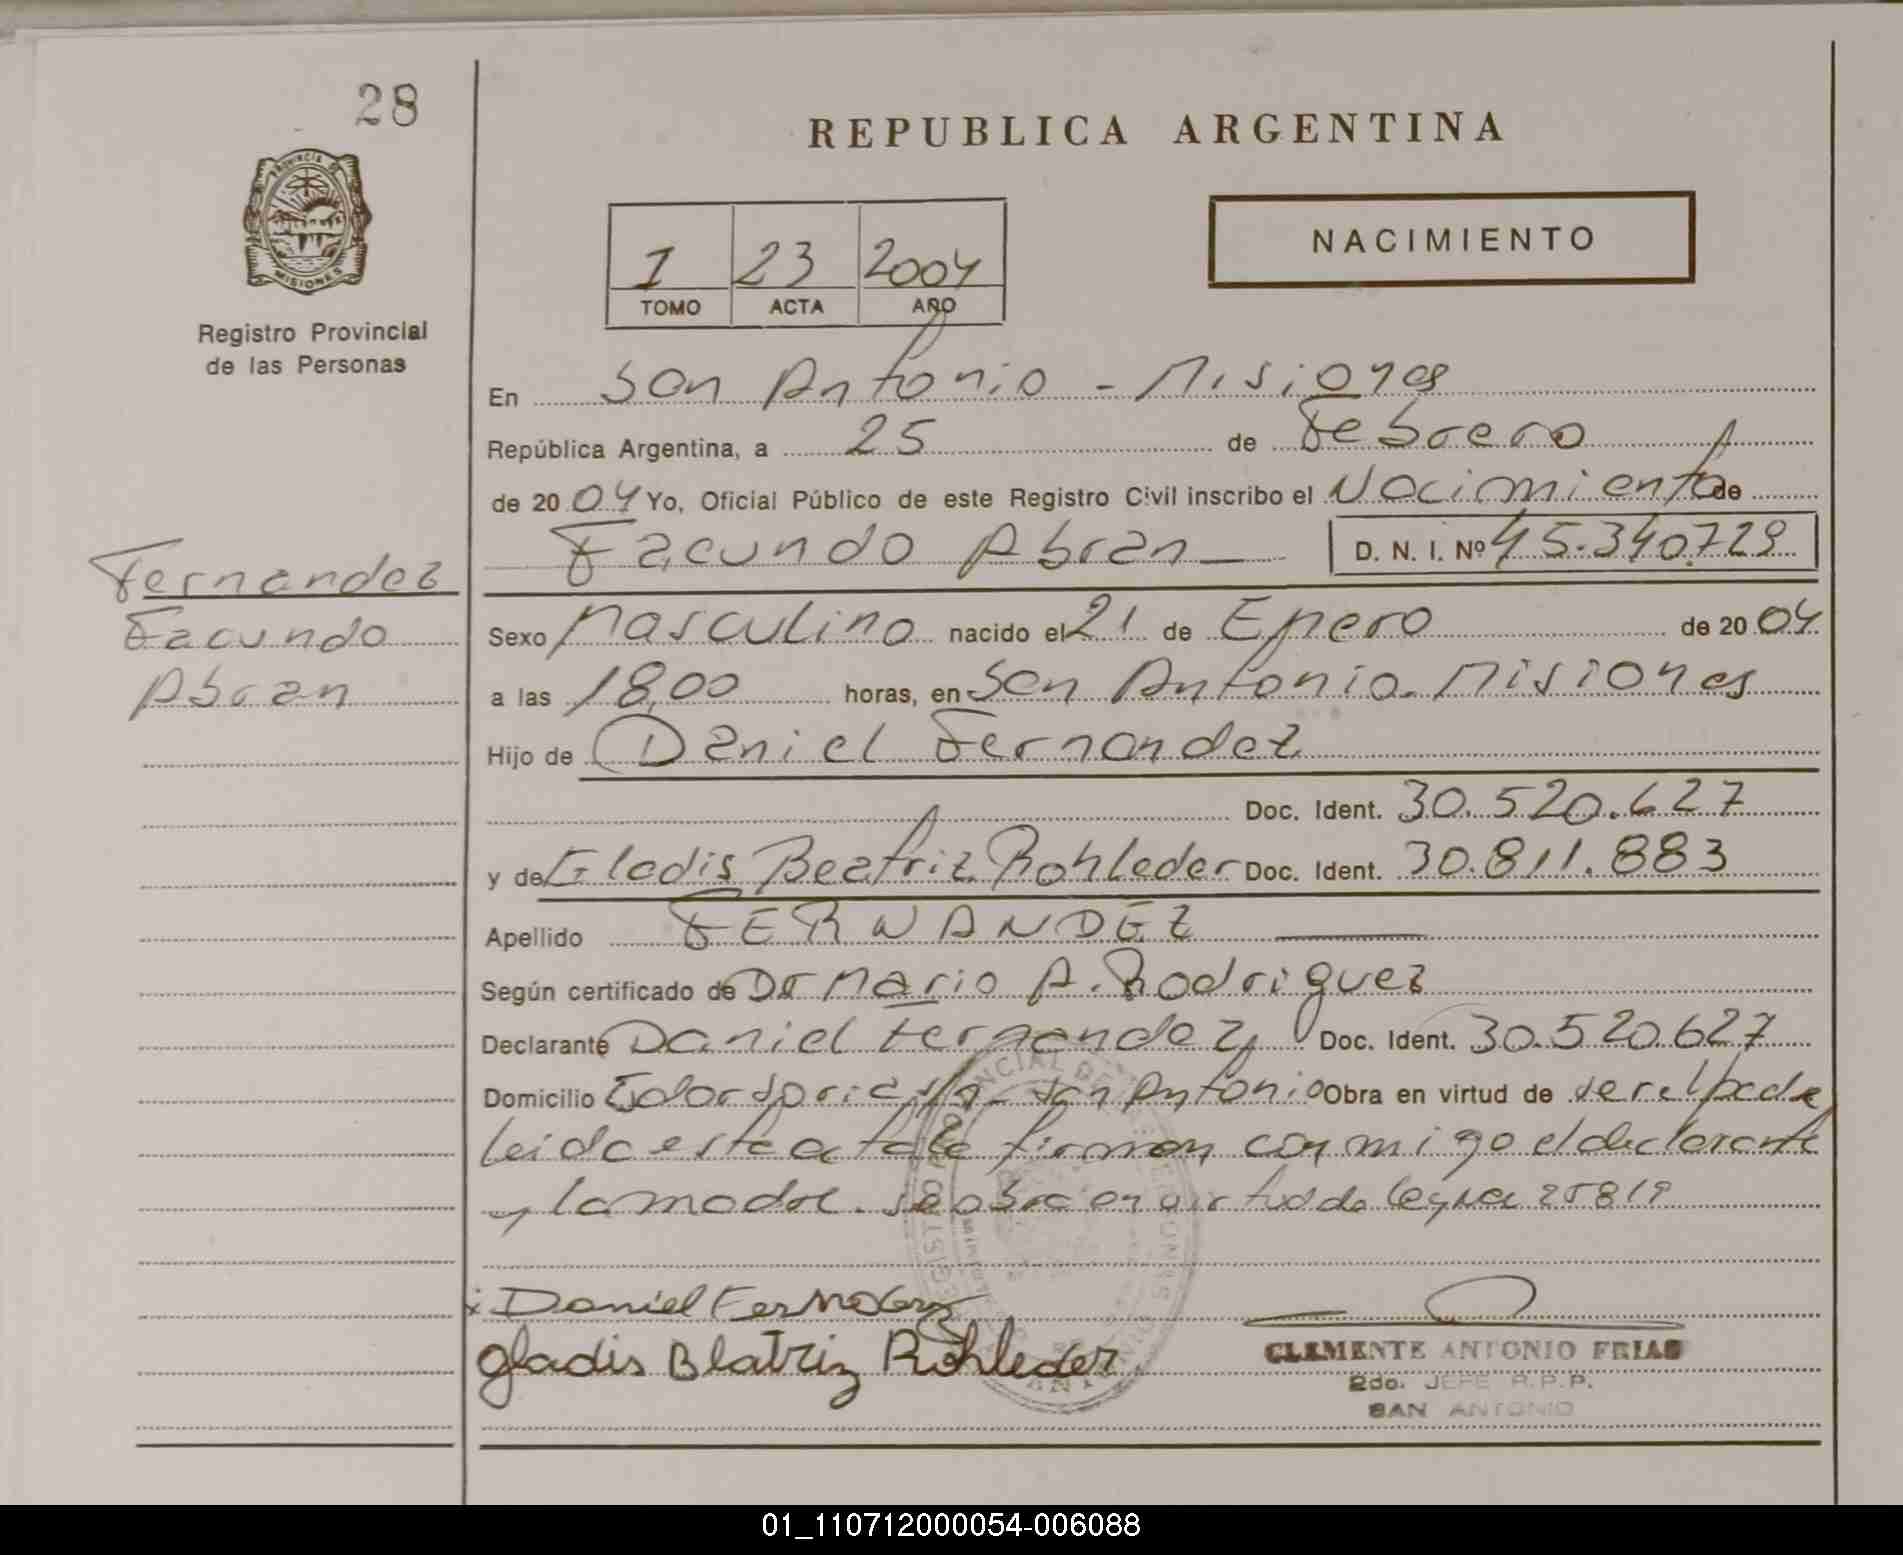 28
REPUBLICA ARGENTINA
PROVINCIA DE
MISIONES
Registro Provincial
de las Personas
I 23 2004
TOMO ACTA AÑO
NACIMIENTO
En San Antonio - Misiones
República Argentina, a 25 de Febrero
de 2004 Yo, Oficial Público de este Registro Civil inscribo el Nacimiento de
Facundo Abran D. N. I. Nº 45.340.729
Fernandez
Facundo
Abran
Sexo Masculino nacido el 21 de Enero de 2004
a las 18,00 horas, en San Antonio. Misiones
Hijo de Daniel Fernandez
Doc. Ident. 30.520.627
y de Gladis Beatriz Rohleder Doc. Ident. 30.811.883
Apellido FERNANDEZ
Según certificado de Dr Mario A. Rodriguez
Declarante Daniel Fernandez Doc. Ident. 30.520.627
Domicilio San Antonio Obra en virtud de ser el padre
leida esta acta la firman conmigo el declarante
y la madre. se obra en virtud de ley Nº 25819
Daniel Fernandez
gladis Beatriz Rohleder
CLEMENTE ANTONIO FRIAS
2do. JEFE R.P.P.
SAN ANTONIO
01_110712000054-006088